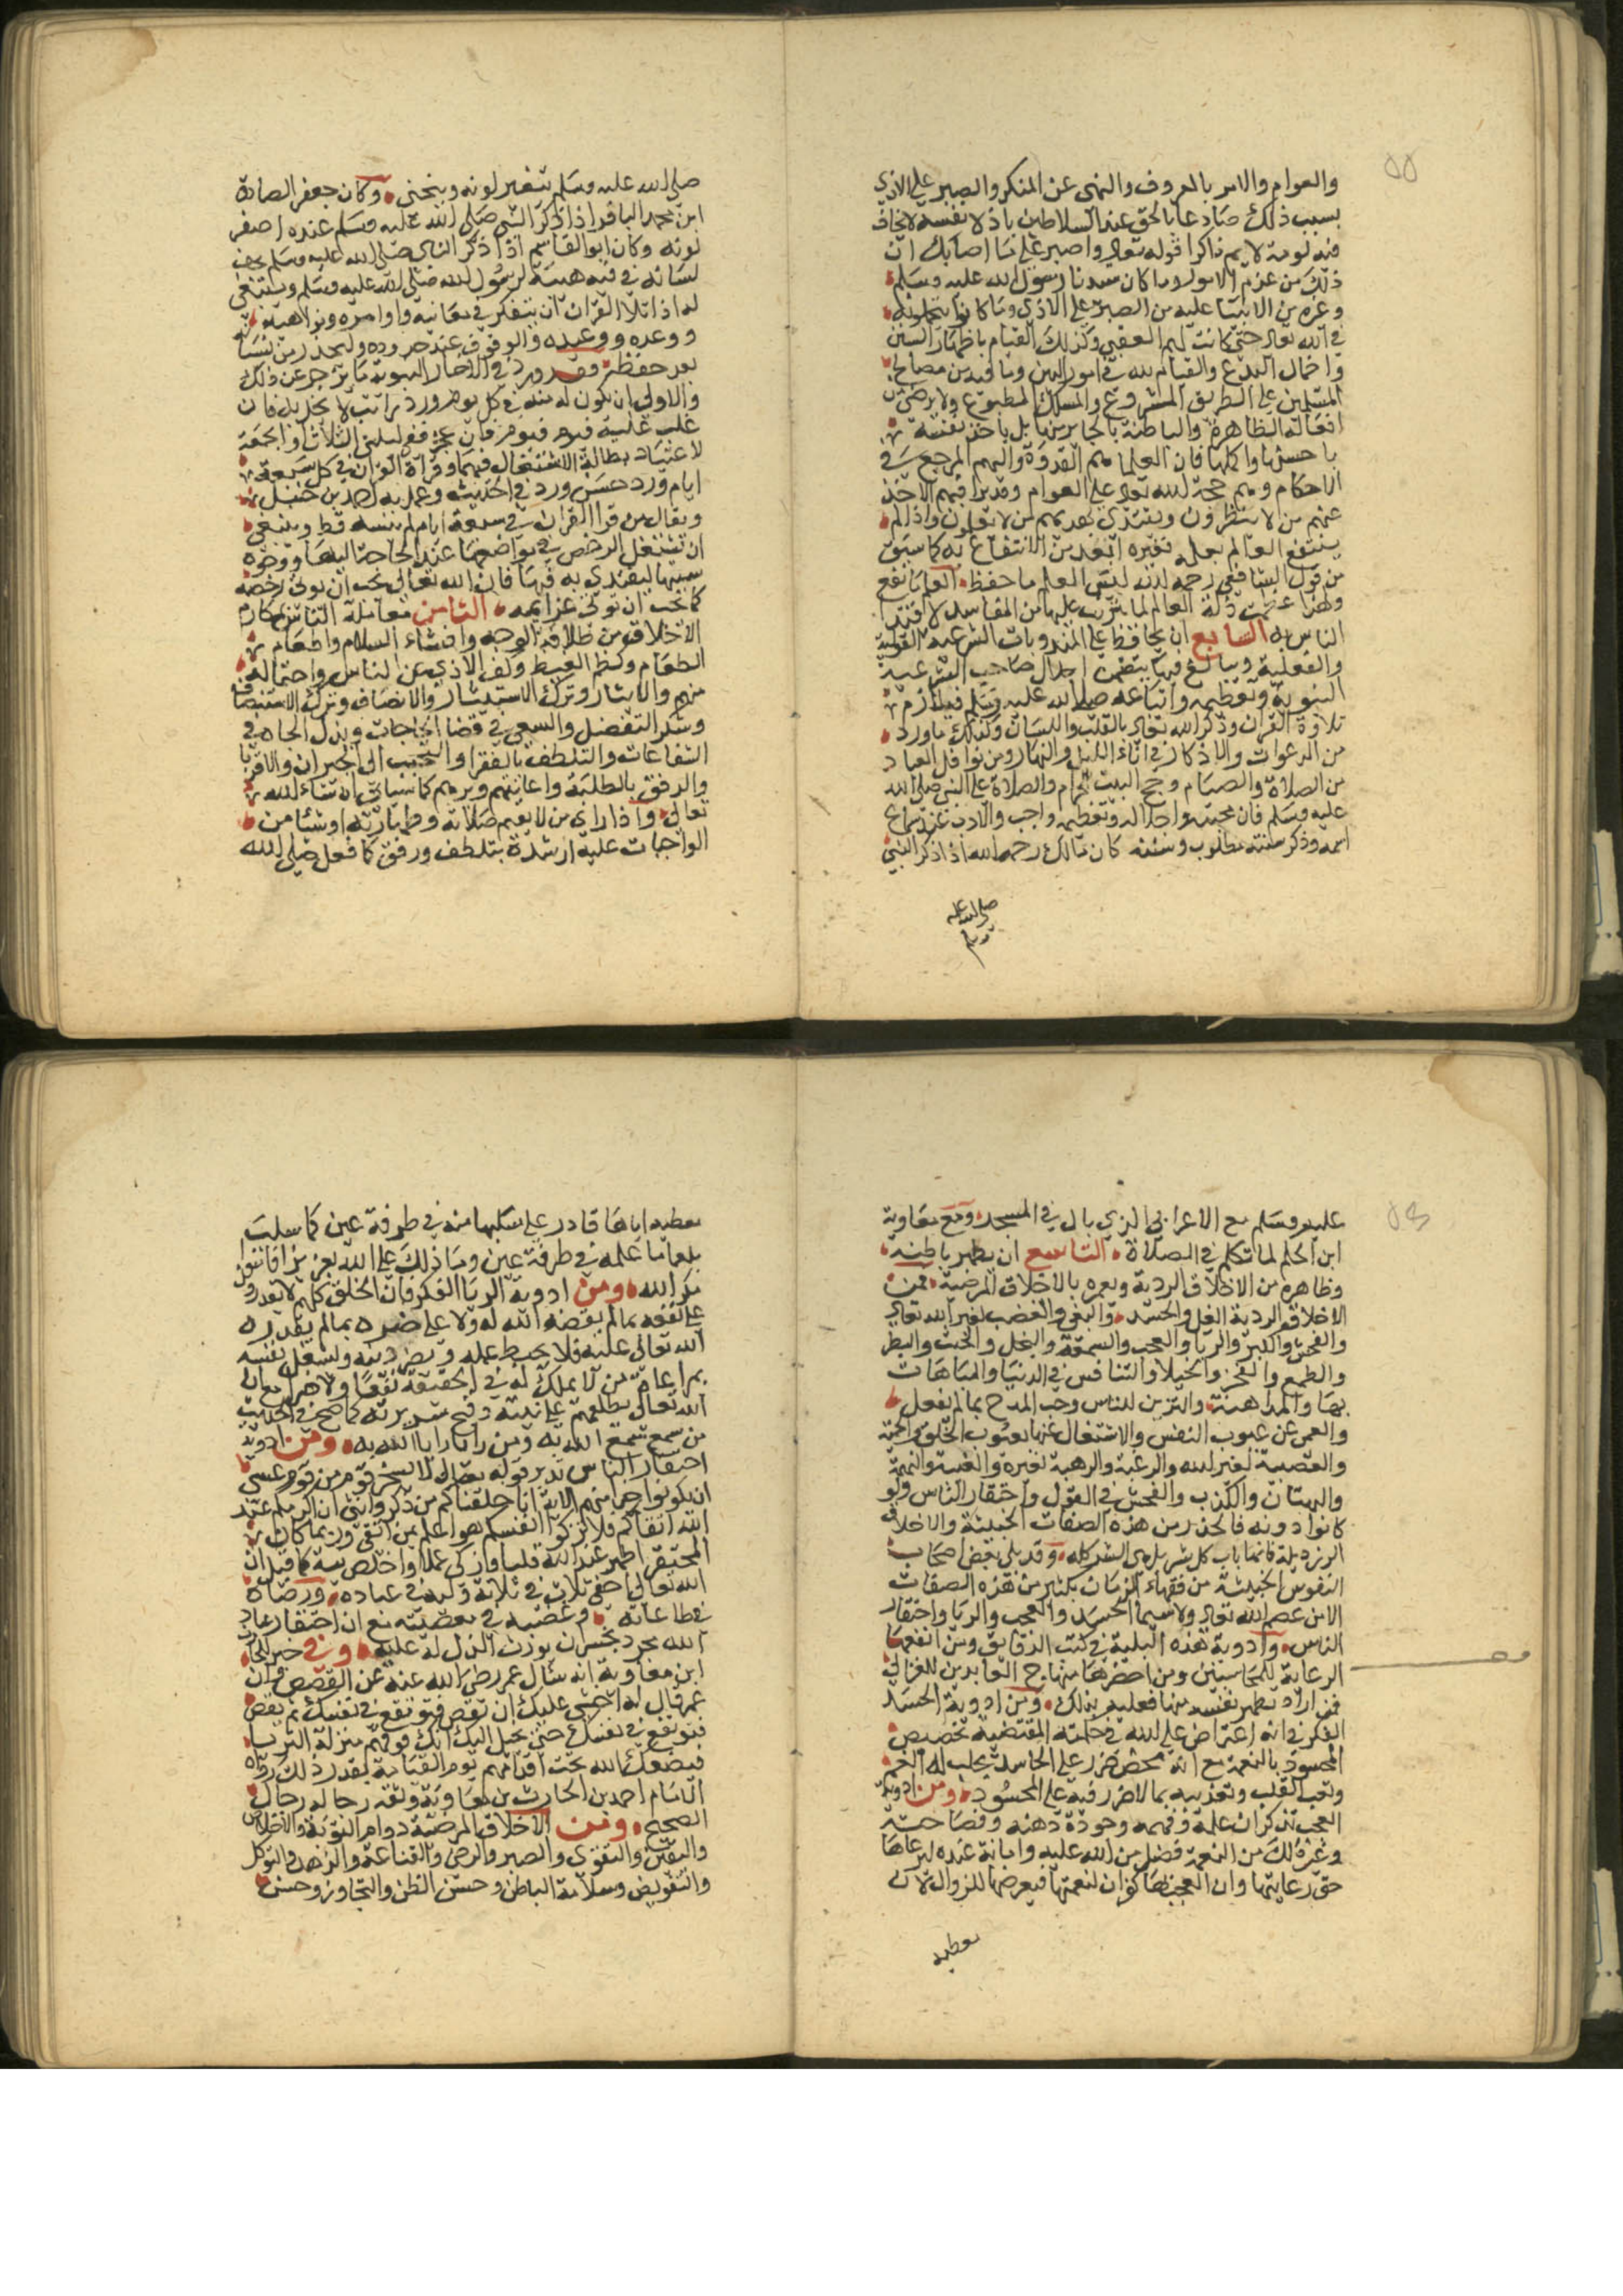 ٥٥
والعوام والامر بالمعروف والنهي عن المنكر والصبر على الاذي
بسبب ذلك صادعا بالحق عند السلاطين باذلا نفسه لا يخاف
فيه لومة لايم ذاكرا قوله تعالى واصبر على ما اصابك ان
ذلك من عزم الامور وما كان سيدنا رسول الله عليه وسلم
وغيره من الانبيا عليه من الصبر على الاذي وما كانوا يتحملونه
في الله تعالى حتى كانت لهم العقبي وكذلك القيام باظهار السنن
واخمال البدع والقيام لله في امور الدين وما فيه من مصالح
المسلمين على الطريق المشروع والمسلك المطبوع ولا يرضى من
افعاله الظاهرة والباطنة بالجايز منها بل ياخذ نفسه
باحسنها واكملها فان العلما هم القدوة واليهم المرجع في
الاحكام وهم حجة لله تعالى على العوام وقد يراقبهم الاخذ
عنهم من لا ينظرون ويقتدي بهديهم من لا يعلمون واذا لم
ينتفع العالم بعلمه فغيره ابعد من الانتفاع به كما سبق
من قول الشافعي رحمه الله ليس العلم ما حفظ العلم ما نفع
ولهذا عظمت زلة العالم لما يترتب عليها من المفاسد لاقتدا
الناس به السابع ان يحافظ على المندوبات الشرعية القولية
والفعلية ويبالغ فيما يتضمن اجلال صاحب الشرعية
النبوية وتعظيمه واتباعه صلى الله عليه وسلم فيلازم
تلاوة القران وذكر الله تعالى بالقلب واللسان وكذلك ما ورد
من الدعوات والاذكار في اناء الليل والنهار ومن نوافل العباد
من الصلاة والصيام وحج البيت الحرام والصلاة على النبي صلى الله
عليه وسلم فان محبته واجلاله وتعظيمه واجب والادب عند سماع
اسمه وذكر سنته مطلوب وسنة كان مالك رحمه الله اذا ذكر النبي
صلى الله عليه
وسلم
صلى الله عليه وسلم يتغير لونه وينحني وكان جعفر الصادق
ابن محمد الباقر اذا ذكر النبي صلى الله عليه وسلم عنده اصفر
لونه وكان ابو القاسم اذا ذكر النبي صلى الله عليه وسلم يجف
لسانه في فيه هيبة لرسول الله صلى الله عليه وسلم وينبغي
له اذا تلا القران ان يتفكر في معانيه واوامره ونواهيه
ووعده ووعيده والوقوف عند حدوده وليحذر من نسيانه
بعد حفظه فقد ورد في الاخبار النبوية ما يزجر عن ذلك
والاولي ان يكون له منه في كل يوم ورد راتب لا يخل به فان
غلب عليه فيوم فيوم فان عجز ففي ليلتي الثلاثا والجمعة
لاعتياد بطالة الاشتغال فيهما وقراة القران في كل سبعة
ايام ورد حسن ورد في الحديث وعمل به احمد بن حنبل
ويقال من قرا القران في سبعة ايام لم ينسه قط وينبغي
ان تستعمل الرخص في مواضعها عند الحاجة اليها ووجود
سببها ليقتدي به فيها فان الله تعالى يحب ان توتى رخصه
كما يحب ان توتى عزايمه الثامن معاملة الناس بمكارم
الاخلاق من طلاقة الوجه وافشاء السلام واطعام
الطعام وكظم الغيظ وكف الاذي عن الناس واحتماله
منهم والايثار وترك الاستيثار والانصاف وترك الاستنصاف
وشكر التفضل والسعي في قضا الحاجات وبذل الجاه في
الشفاعات والتلطف بالفقرا والتحبب الى الجيران والاقربا
والرفق بالطلبة واعانتهم وبرهم كما سياتي ان شاء الله
تعالى واذا راى من لا يقيم صلاته وطهارته او شيا من
الواجبات عليه ارشده بتلطف ورفق كما فعل صلى الله
٥٦
عليه وسلم مع الاعرابي الذي بال في المسجد ومع معاوية
ابن الحكم لما تكلم في الصلاة التاسع ان يطهر باطنه
وظاهره من الاخلاق الردية ويعمره بالاخلاق المرضية فمن
الاخلاق الردية الغل والحسد والبغي والغضب لغير الله تعالى
والغش والكبر والريا والعجب والسمعة والبخل والخبث والبطر
والطمع والفخر والخيلا والتنافس في الدنيا والمباهات
بها والمداهنة والتزين للناس وحب المدح بما لم يفعل
والعمى عن عيوب النفس والاشتغال عنها بعيوب الخلق والحمية
والعصبية لغير الله والرغبة والرهبة لغيره والغيبة والنميمة
والبهتان والكذب والفحش في القول واحتقار الناس ولو
كانوا دونه فالحذر من هذه الصفات الخبيثة والاخلاق
الرزديلة فانها باب كل شر بل هي الشر كله وقد بلي بعض اصحاب
النفوس الخبيثة من فقهاء الزمان بكثير من هذه الصفات
الا من عصم الله تعالى ولا سيما الحسد والعجب والريا واحتقار
الناس وادوية هذه البلية في كتب الرقايق ومن انفعها
الرعاية للمحاسبي ومن اخصرها منهاج العابدين للغزالي
فمن اراد تطهير نفسه منها فعليه بذلك ومن ادوية الحسد
الفكر في انه اعتراض على الله في حكمته المقتضية تخصيص
المحسود بالنعمة مع انه محض ضرر على الحاسد يجلب له الغم
وتعب القلب وتعذيبه بما لا ضرر فيه على المحسود ومن ادوية
العجب تذكر ان علمه وفهمه وجودة ذهنه وفصاحته
وغير ذلك من النعمة فضل من الله عليه وامانة عنده ليرعاها
حق رعايتها وان العجب بها كفران لنعمتها فيعرضها للزوال لان
معطيه
معطيه اياها قادر على سلبها منه في طرفة عين كما سلب
بلعاما علمه في طرفة عين وما ذلك على الله بعزيز افامنوا
مكر الله ومن ادوية الريا الفكر فان الخلق كلهم لا يقدرون
على نفعه بما لم يقضه الله له ولا على ضره بما لم يقدره
الله تعالى عليه فلا يحبط عمله ويضر دينه ويشغل نفسه
بمراعاة من لا يملك له في الحقيقة نفعا ولا ضرا مع ان
الله تعالى يطلعهم على نيته وقبح سريرته كما صح في الحديث
من سمع سمع الله به ومن رايا رايا الله به ومن ادوية
احتقار الناس تدبر قوله تعالى لا يسخر قوم من قوم عسى
ان يكونوا خيرا منهم الاية انا خلقناكم من ذكر وانثى ان اكرمكم عند
الله اتقاكم فلا تزكوا انفسكم هو اعلم بمن اتقى وربما كان
المحتقر اطهر عند الله قلبا وازكى عملا واخلص نية كما قيل ان
الله تعالى اخفى ثلاث في ثلاثة وليه في عباده ورضاه
في طاعاته وغضبه في معصيته مع ان احتقار عباد
الله مجرد خسران يورث الذل له عليه وفي خبر الحارث
ابن معاوية انه سال عمر رضى الله عنه عن القصص فقال
عمر قال له اخشى عليك ان تقص فترتفع في نفسك ثم تقص
فترتفع في نفسك حتى يخيل اليك انك فوقهم بمنزلة الثريا
فيضعك الله تحت اقدامهم يوم القيامة بقدر ذلك رواه
الامام احمد بن الحارث بن معاوية وثقه رجاله رجال
الصحيح ومن الاخلاق المرضية دوام التوبة والاخلاص
واليقين والتقوى والصبر والرضى والقناعة والزهد والتوكل
والتفويض وسلامة الباطن وحسن الظن والتجاوز وحسن